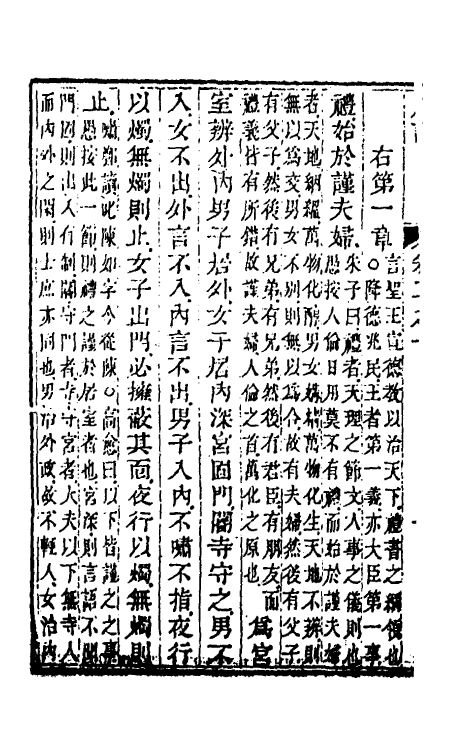 右第一章○言聖王宣德教以治天下禮書之綱領也
○降德兆民王者第一義亦大臣第一事
禮始於謹夫婦朱子曰禮者天理之節文人事之儀則也
愚按人倫日用莫不有禮而始於謹夫婦
者天地絪縕萬物化醇男女媾精萬物化生天地不辨則
無以為交男女不別則無以為合故有夫婦然後有父子
有父子然後有兄弟有兄弟然後有君臣有朋友而
禮義皆有所錯故謹夫婦人倫之首萬化之原也為宮
室辨外內男子居外女子居內深宮固門閽寺守之男不
入女不出外言不入內言不出男子入內不嘯不指夜行
以燭無燭則止女子出門必擁蔽其面夜行以燭無燭則
止嘯鄭讀叱陳如字今從陳○高愈曰以下皆謹之之事
愚按此一節則禮之謹於居室者也宮深則言語不聞
門固則出入有制閽守門者寺守宮者大夫以下無寺人
而內外之閑則士庶亦同也男治外政故不輕入女治內